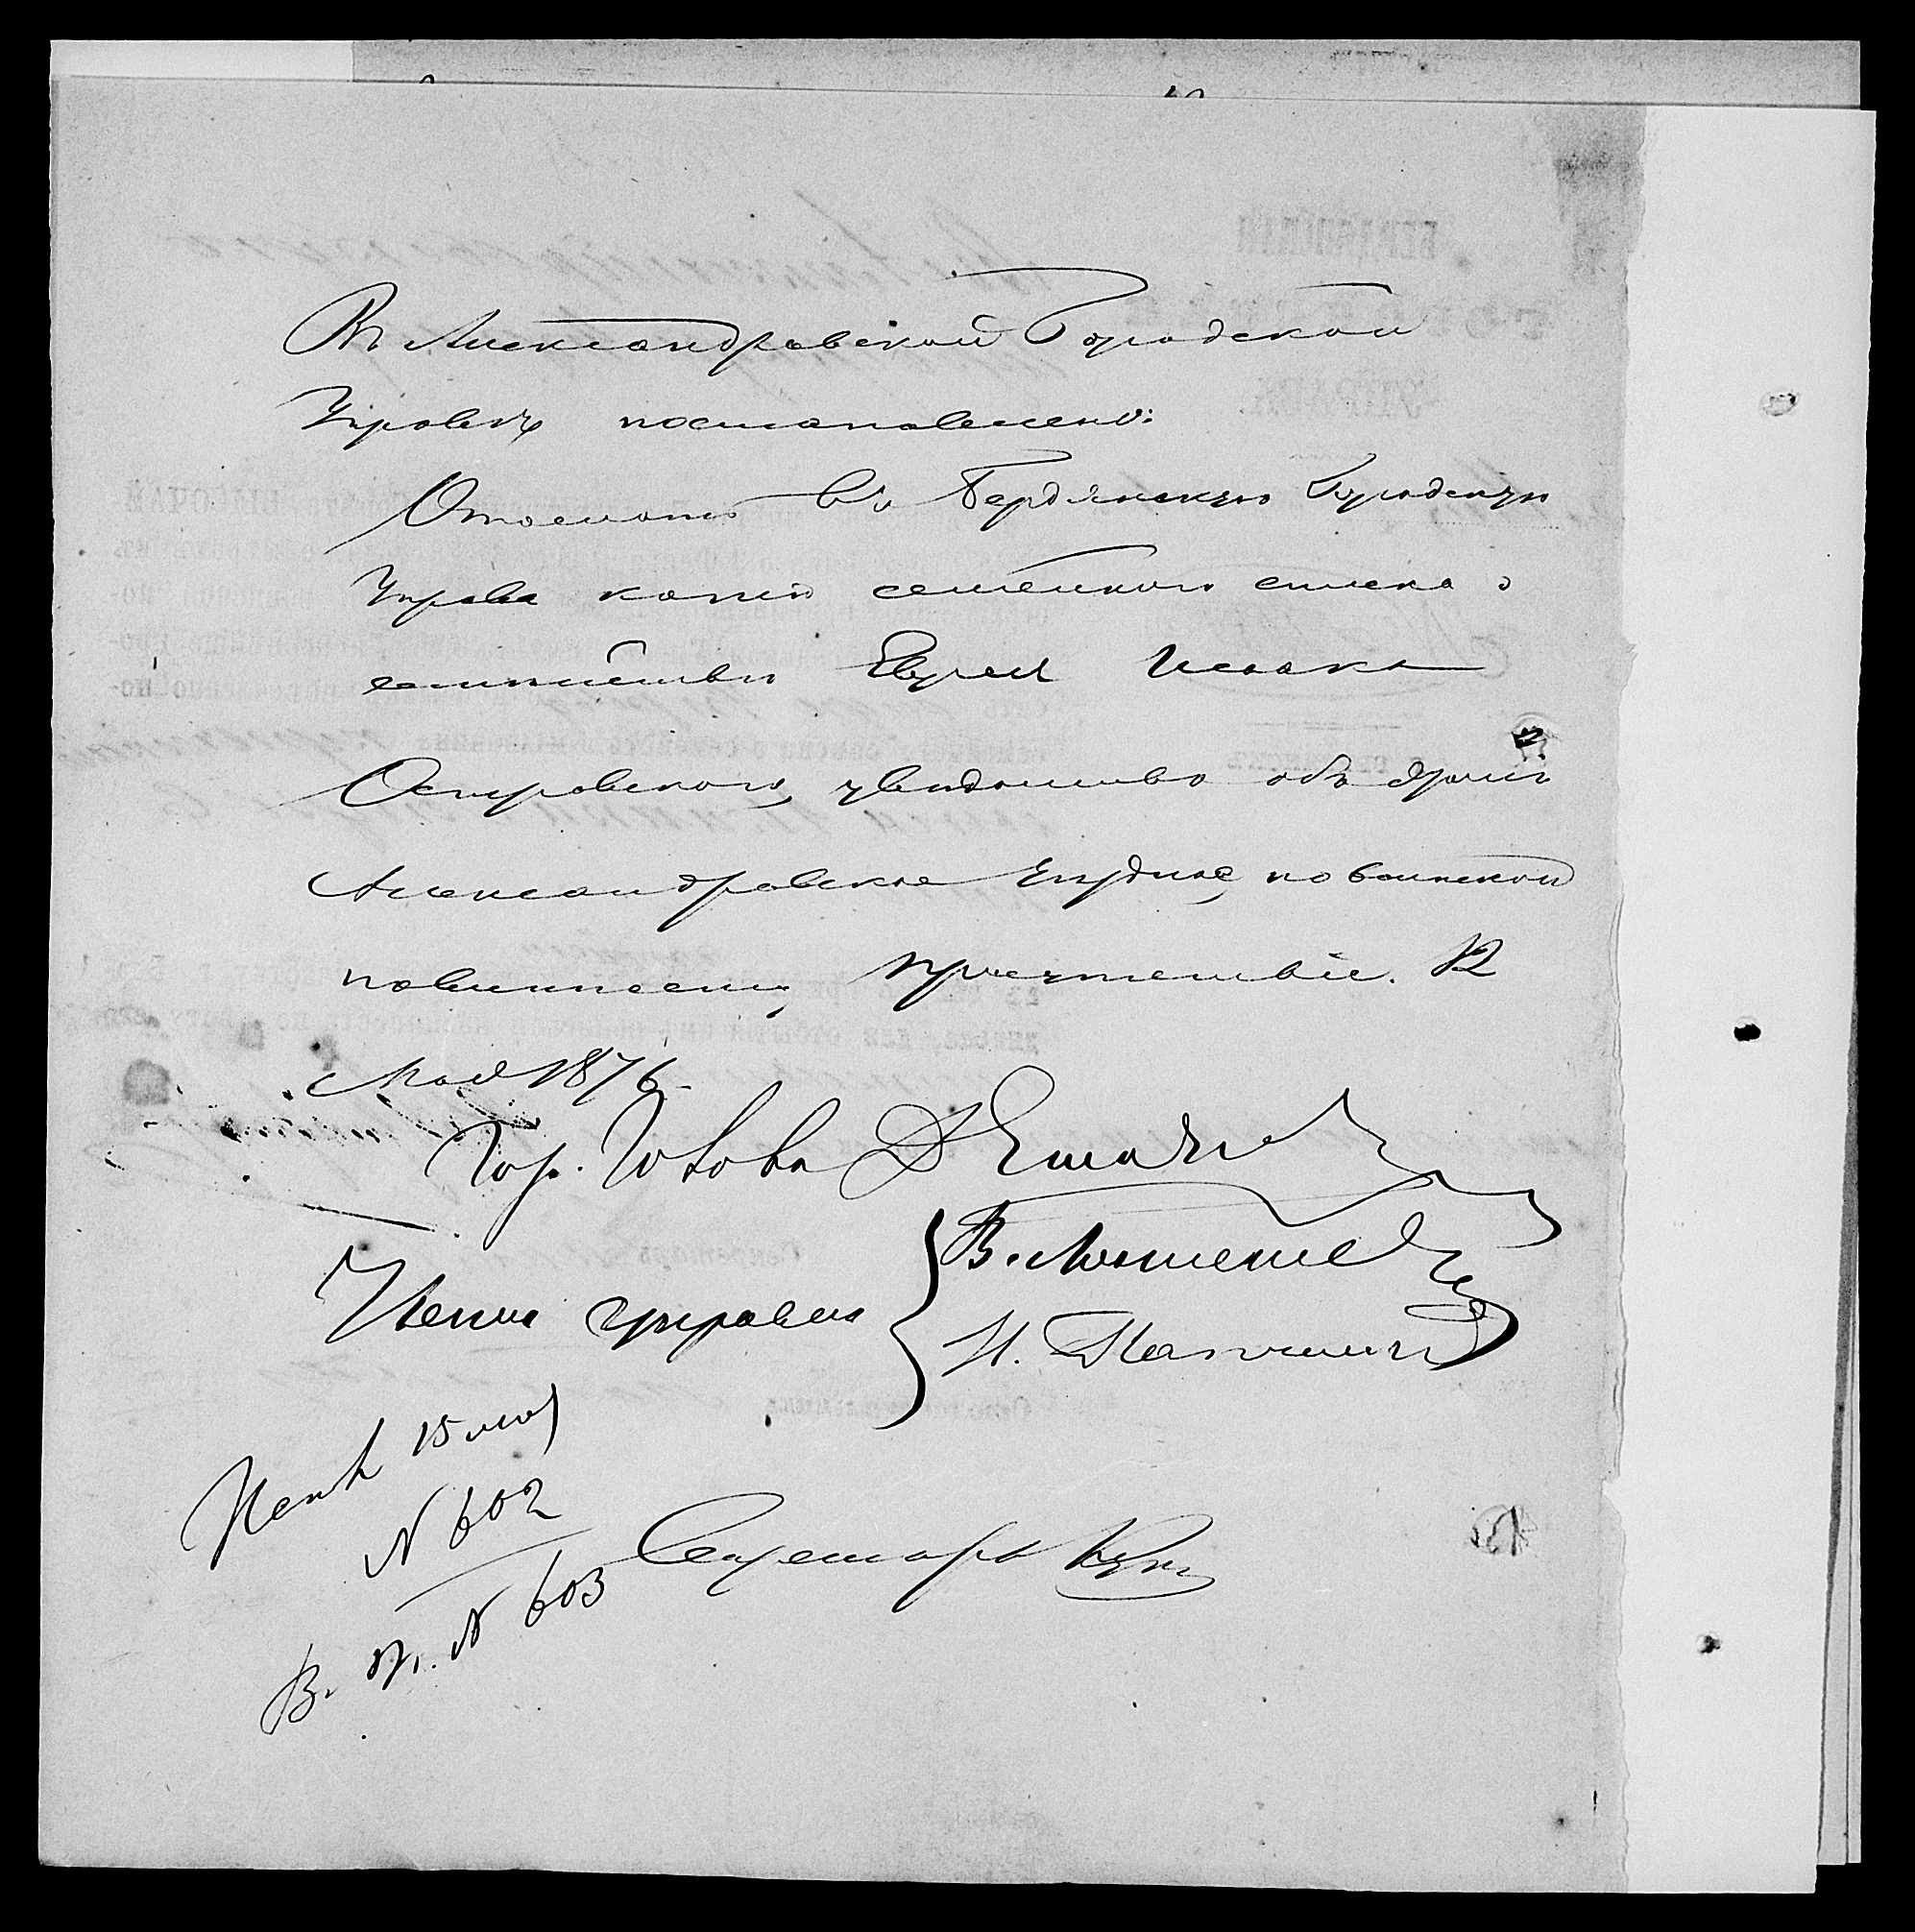 Въ Александровской Городской
Управѣ постановлено:
Отослать въ Бердянскую Городскую
Управу копію семейнаго списка о
семействѣ Еврея Исаака
Островскаго, увѣдомивъ объ этомъ
Александровское Уѣздное по воинской
повинности присутствіе. 12
Мая 1876
Гор. Голова
Члены управы
В.
И.
Исп 15 мая
N 602
N 603
Секретарь